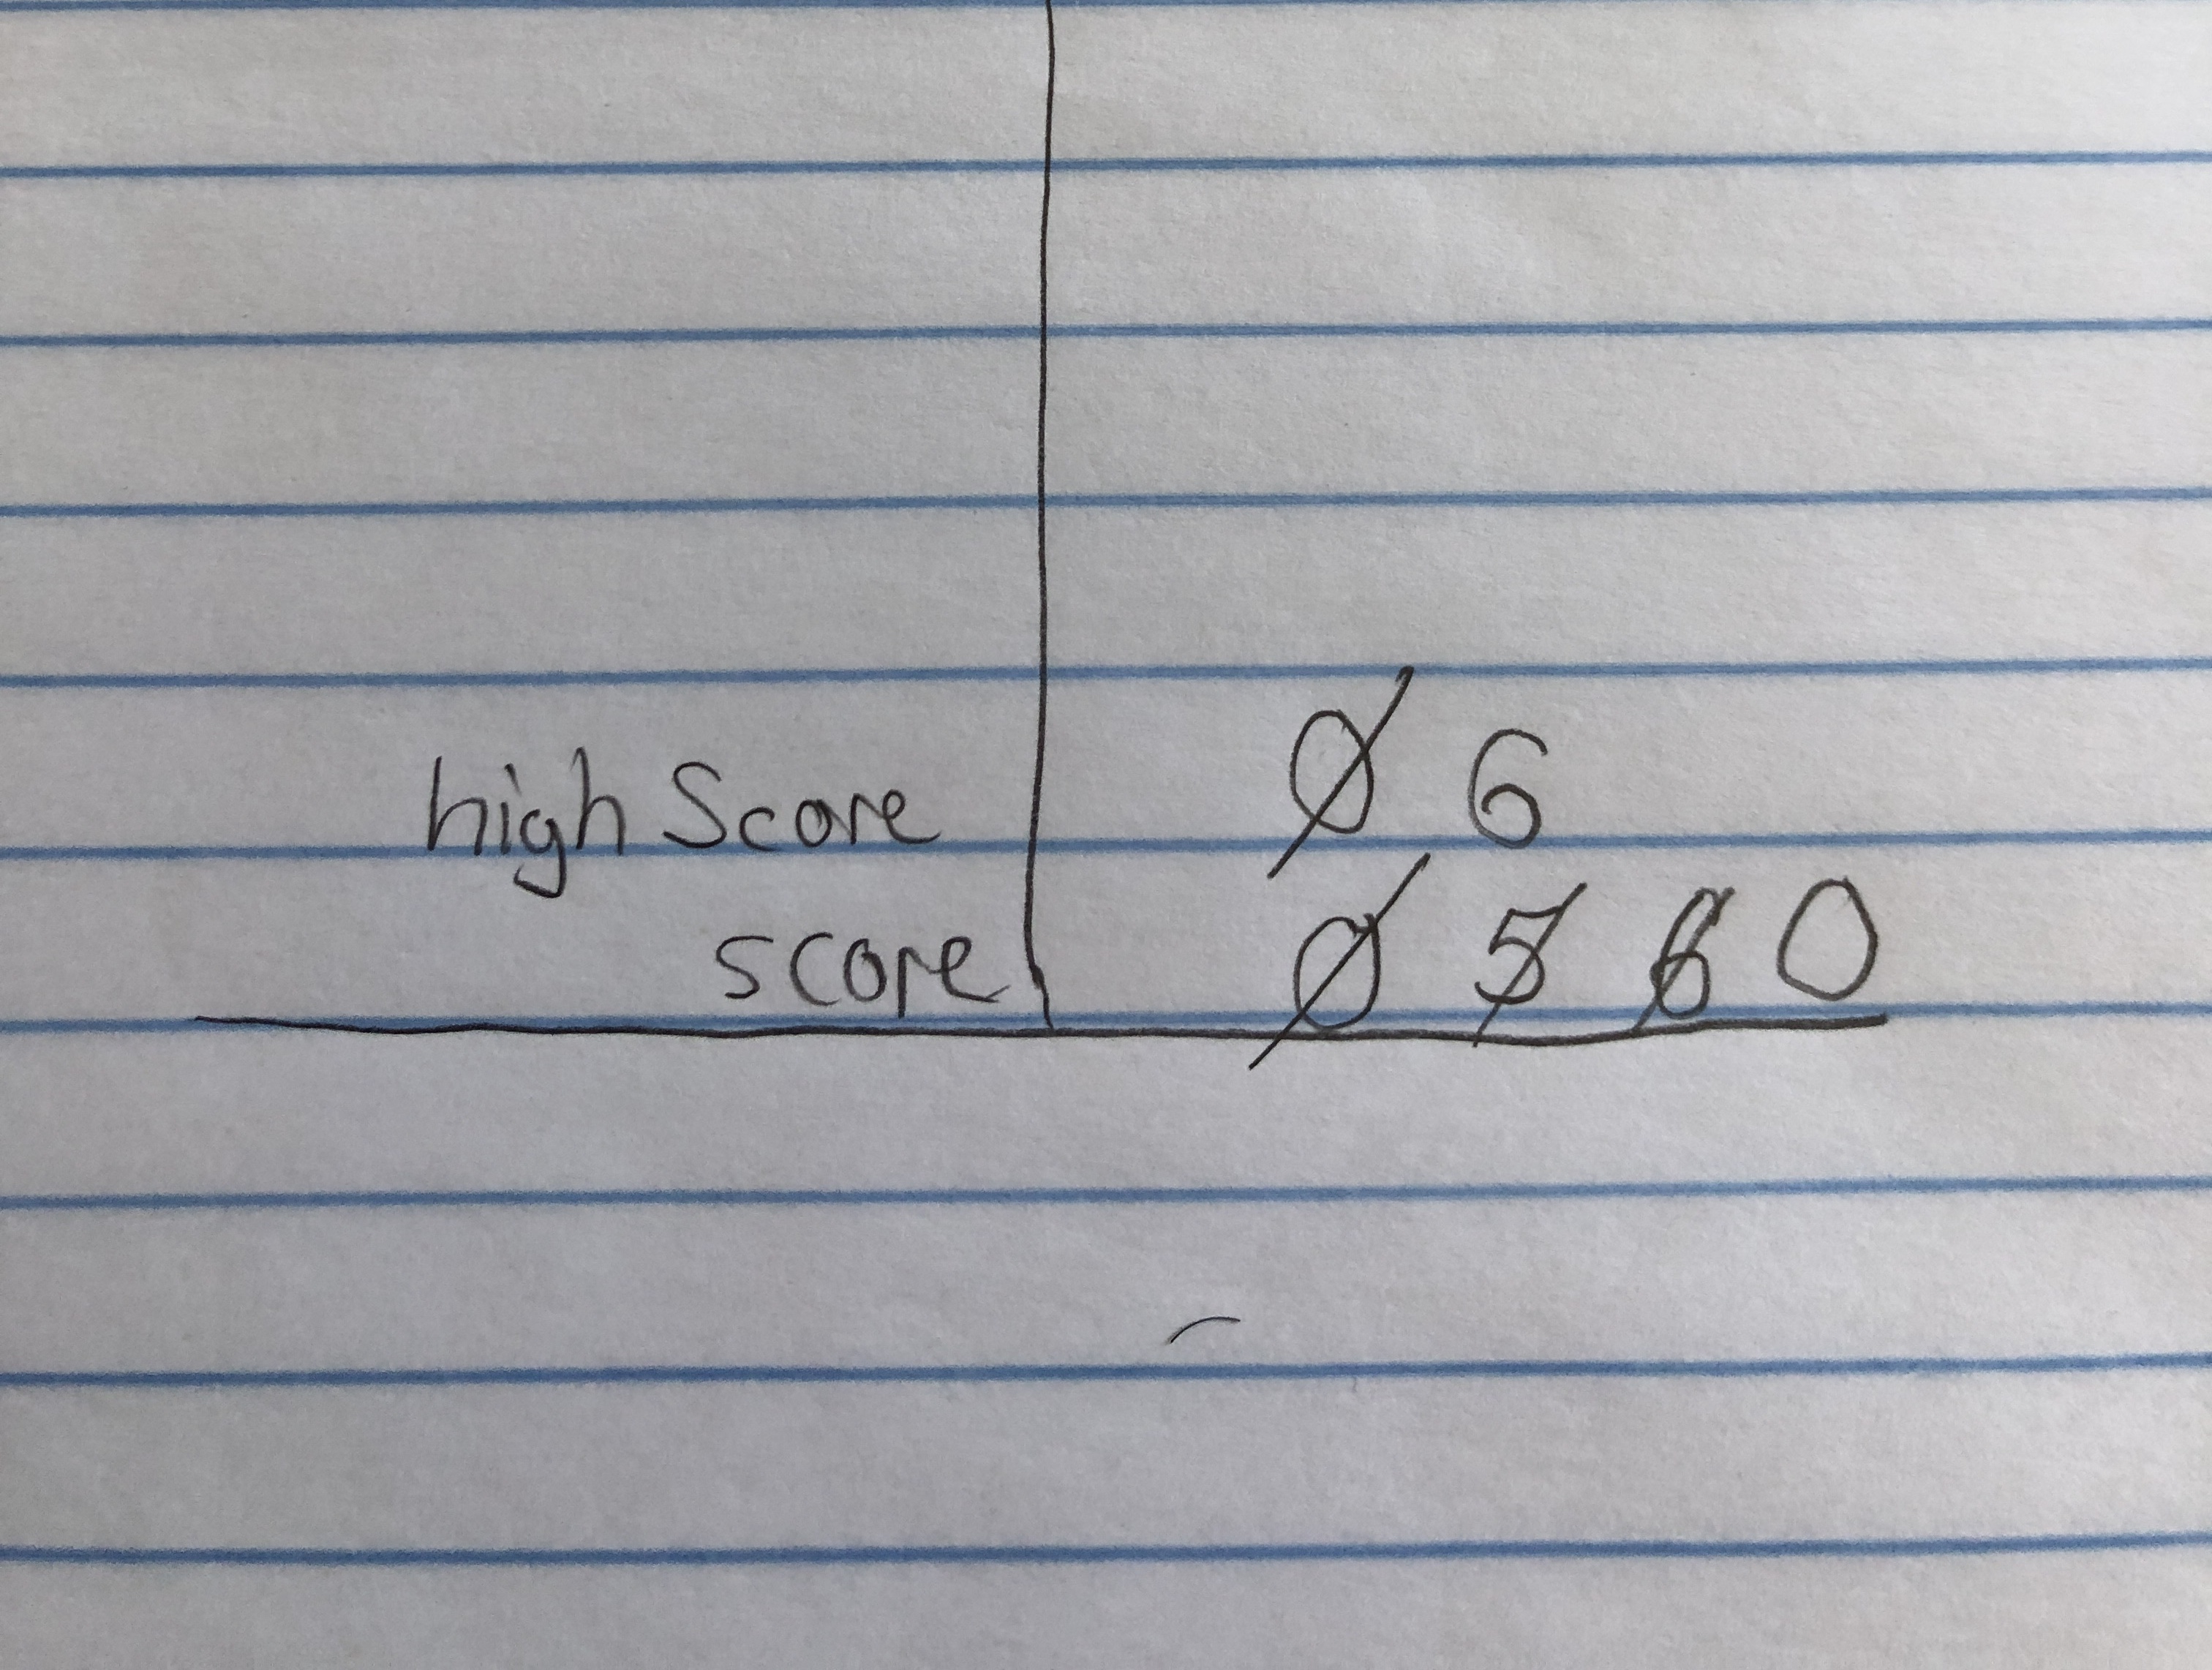 high Score 0 6
score 0 5 6 0